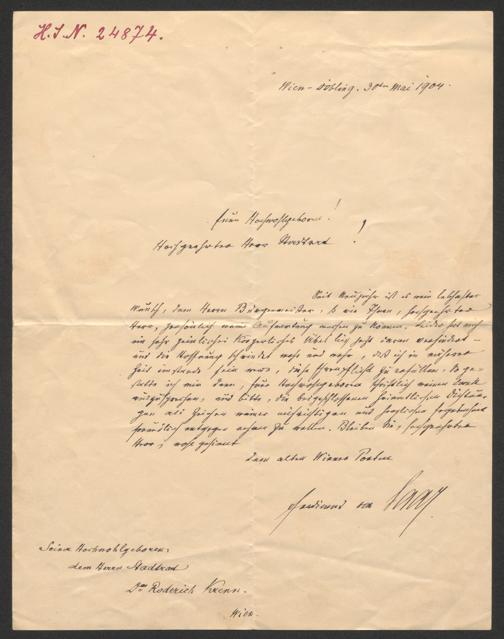 H.I.N. 24874.
Wien-Döbling. 30ten Mai 1904.
Euer Hochwohlgeboren!
Hochgeehrter Herr Stadtrat!
Seit Neujahr ist es mein lebhafter
Wunsch, dem Herrn Bürgermeister, so wie Ihnen, hochgeehrter
Herr, persönlich meine Aufwartung machen zu können. Leider hat mich
ein sehr peinliches körperliches Übel bis jetzt daran verhindert –
und die Hoffnung schwindet mehr und mehr, daß ich in näherer
Zeit imstande sein werde, diese Ehrenpflicht zu erfüllen. So ge-
statte ich mir denn, Euer Hochwohlgeboren schriftlich meinen Dank
auszusprechen, und bitte, die beigeschlossenen Dichtun-
gen als Zeichen meiner aufrichtigen und herzlichen
freundlich entgegen nehmen zu wollen. Bleiben Sie, hochgeehrter
Herr, wohlgesinnt
dem alten Wiener Poeten
Ferdinand von Saar
Seiner Hochwohlgeboren
dem Herrn Stadtrat
Dr. Roderich Krenn.
Wien.